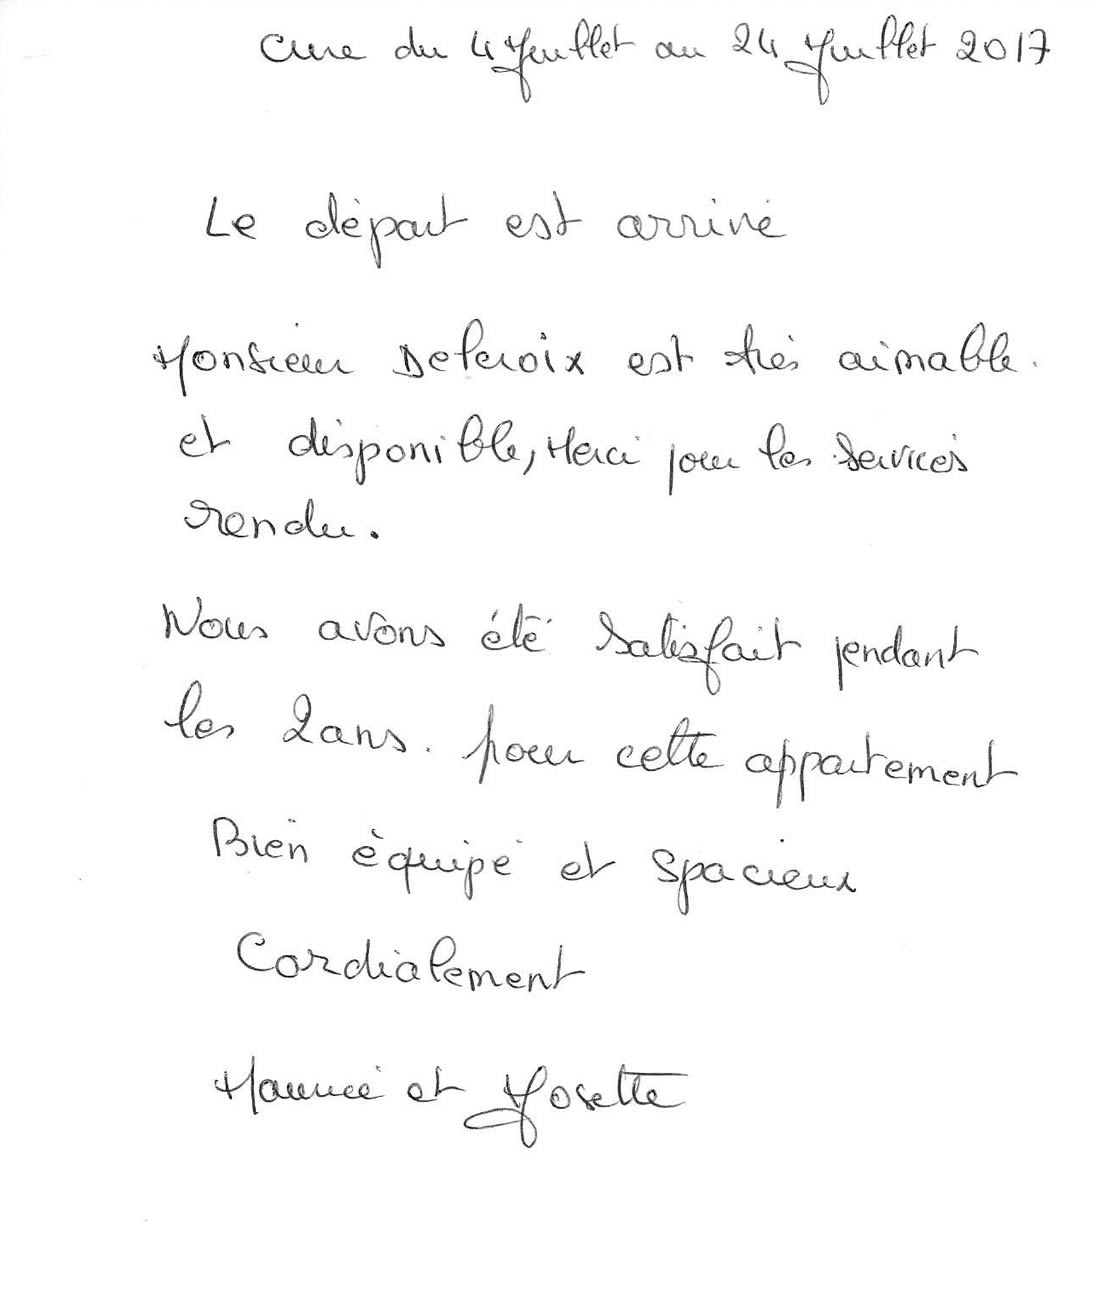 Cure du 4 Juillet au 24 Juillet 2017
Le départ est arrivé
Monsieur Delcroix est très aimable.
et disponible, Merci pour les services
rendu.
Nous avons été satisfait pendant
les 2ans. pour cette appartement
Bien équipé et spacieux
Cordialement
Maurice et Josette